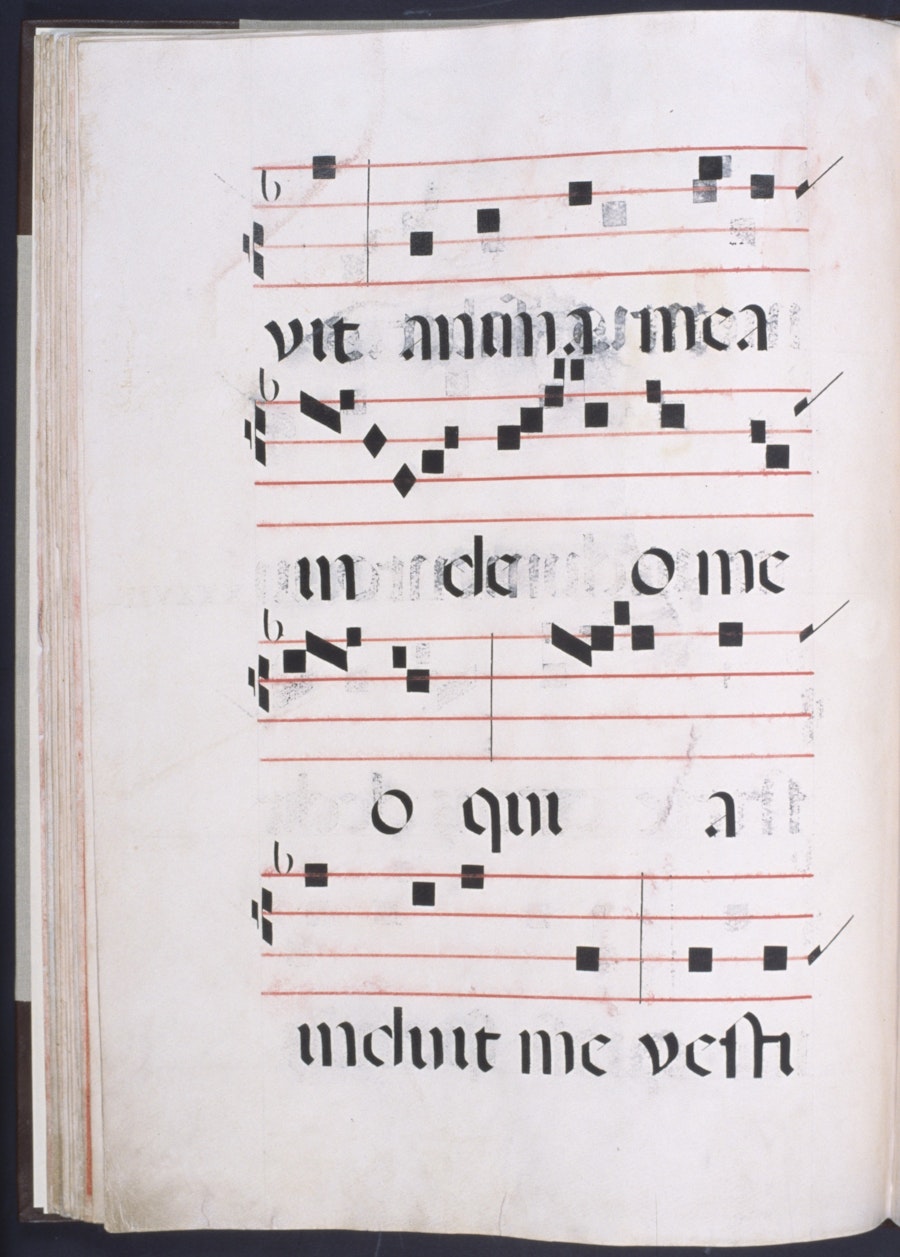 vit anima mea
in de o me
o qui a
induit me vesti